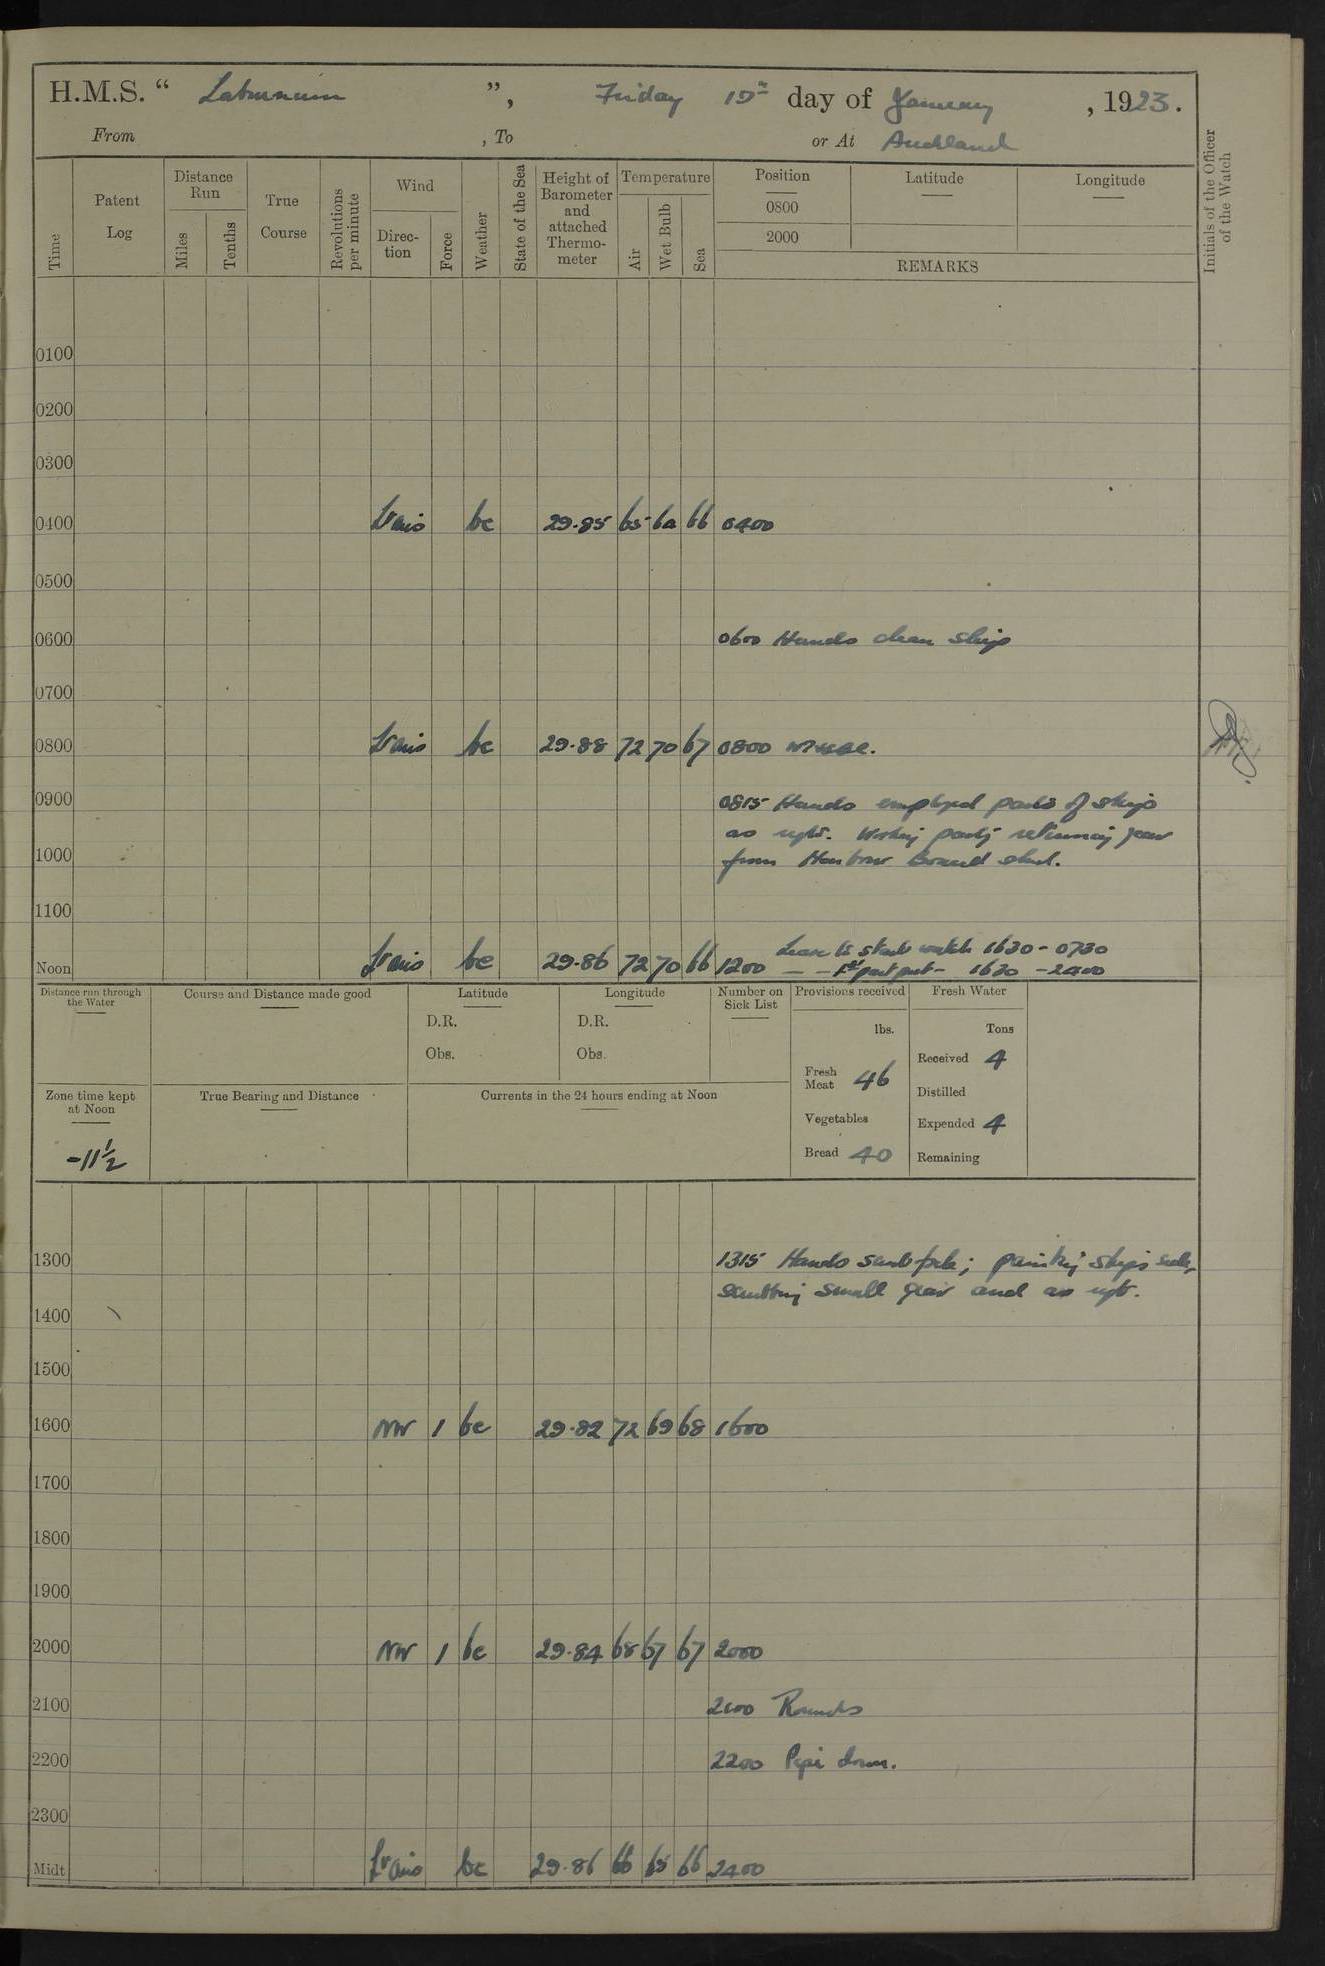 H.M.S. “ Laburnum ”, Friday day of January, 1923.
From , To or At Auckland
Time
Patent Log
Distance Run
Miles
Tenths
True Course
Revolutions per minute
Wind
Direction
Force
Weather
State of the Sea
Height of Barometer and attached Thermometer
Temperature
Air
Wet Bulb
Sea
Position
0800
2000
Latitude
Longitude
REMARKS
Initials of the Officer of the Watch
0100
0200
0300
0400 bc 29.85 65 66 0400
0500
0600 0600 Hands clean ship
0700
0800 bc 29.88 72 70 67 0800
0900 0815 Hands employed parts of ship
as reqte. Working party returning gear
1000 from Harbour Board shed.
1100
Leave to starbd watch 1630 - 0730
Noon bc 29.86 72 70 66 1200 — — 1st part port - 1630 - 2400
Distance run through the Water
Course and Distance made good
Latitude
D.R.
Obs.
Longitude
D.R.
Obs.
Number on Sick List
Provisions received
lbs.
Fresh Meat 46
Vegetables
Bread 40
Fresh Water
Tons
Received 4
Distilled
Expended 4
Remaining
Zone time kept at Noon
-11½
True Bearing and Distance
Currents in the 24 hours ending at Noon
1300 1315 Hands painting ships side,
scrubbing small gear and as reqte.
1400
1500
1600 NW 1 bc 29.82 72 69 68 1600
1700
1800
1900
2000 NW 1 bc 29.84 68 67 67 2000
2100 2100 Rounds
2200 2200 Pipe down.
2300
Midt bc 29.86 66 65 66 2400